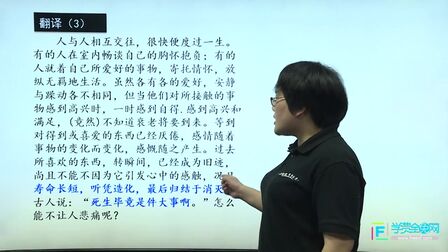 翻译（3）
人与人相互交往，很快便度过一生。
有的人在室内畅谈自己的胸怀抱负；有的
人就着自己所爱好的事物，寄托情怀，放
纵无羁地生活。虽然各有各的爱好，安静
与躁动各不相同，但当他们对所接触的事
物感到高兴时，一时感到自得.感到高兴和
满足，（竟然）不知道衰老将要到来。等到
对得到或喜爱的东西已经厌倦，感情随着
事物的变化而变化，感慨随之产生。过去
所喜欢的东西，转瞬间，已经成为旧迹，
尚且不能不因为它引发心中的感触，况且
寿命长短，听凭造化，最后归结于消灭
古人说：“死生毕竟是件大事啊。”怎么
能不让人悲痛呢？
学费全免网